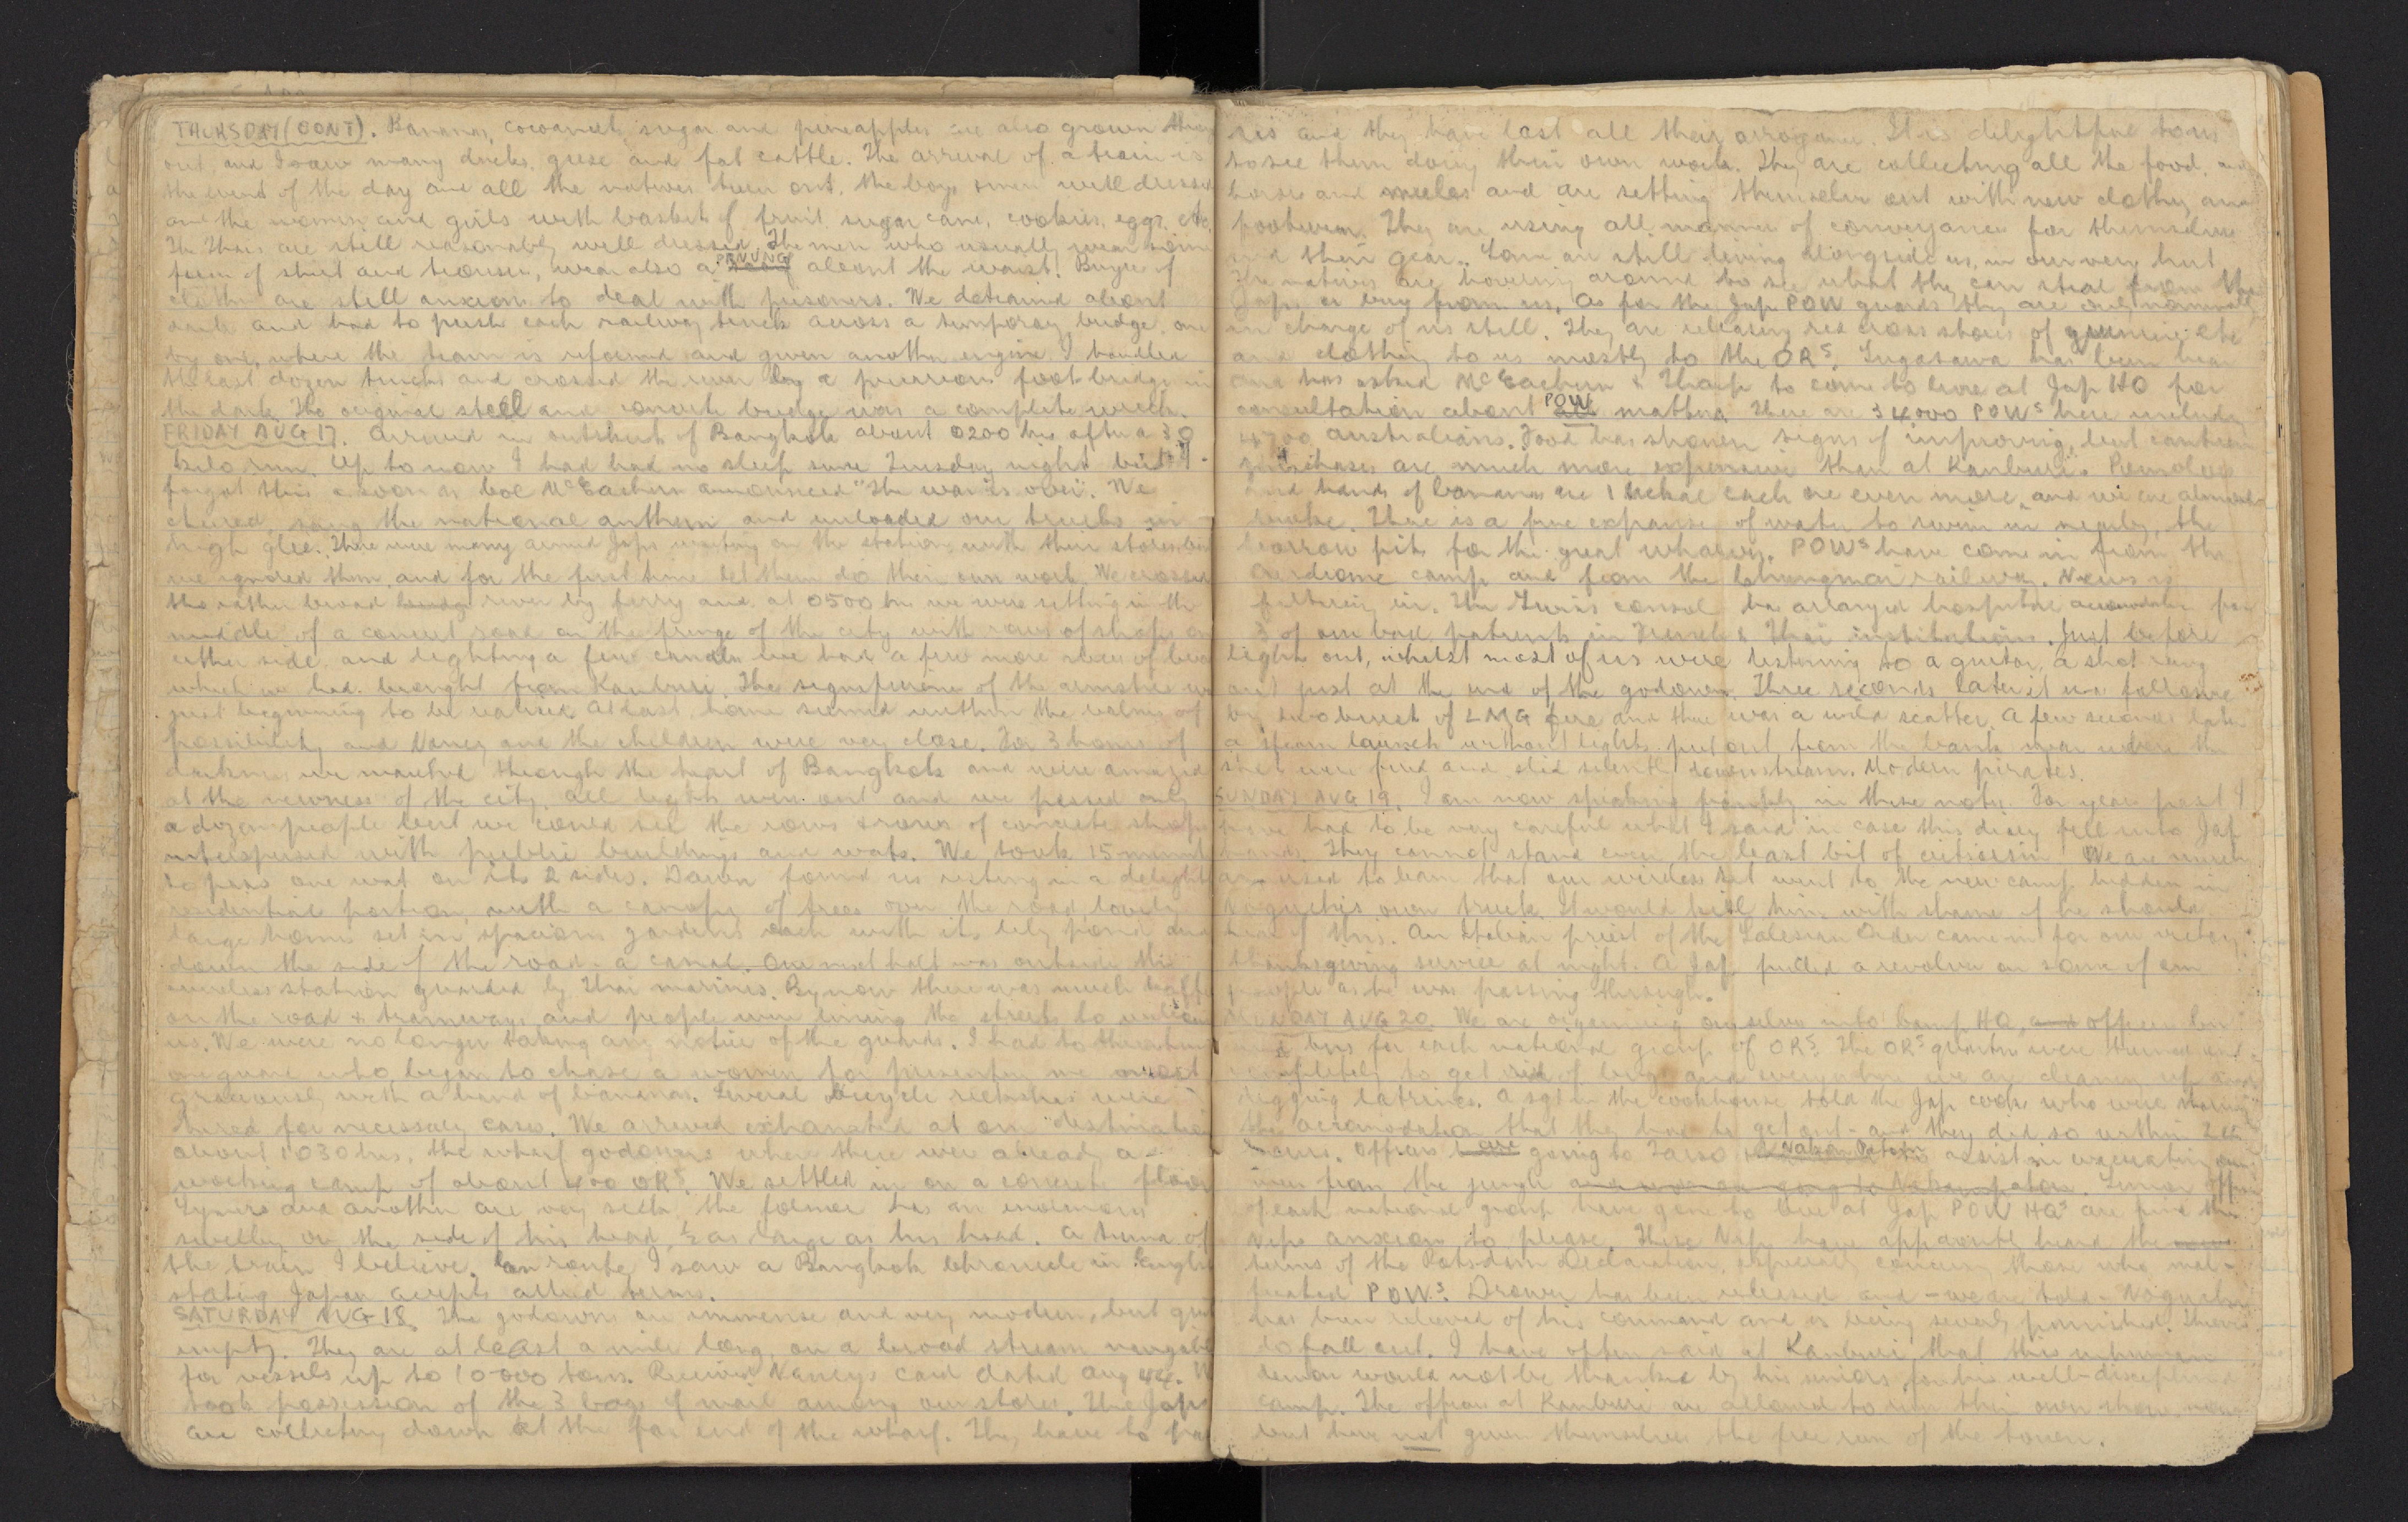 THURSDAY (CONT). Bananas, cocoanuts, sugar and pineapples are also grown there
out, and I saw many ducks, geese and fat cattle. The arrival of a train is
the event of the day and all the natives turn out. The boys & men well dressed
and the women and girls with baskets of fruit, sugar cane, cookies, eggs, etc.
The Thais are still reasonably well dressed. The men who usually wear some
form of shirt and trousers, wear also a PANUNG about the waist. Buyers of
clothes are still anxious to deal with prisoners. We detrained about
dark and had to push each railway truck across a temporary bridge, one
by one, where the train is reformed and given another engine. I handled
the last dozen trucks and crossed the river by a precarious foot bridge in
the dark. The original steel and concrete bridge was a complete wreck.
FRIDAY AUG 17. Arrived in outskirts of Bangkok about 0200 hrs after a 30
kilo run. Up to now I had had no sleep since Tuesday night but I
forgot this as soon as Col McEachern announced "The war is over". We
cheered, sang the national anthem and unloaded our trucks in
high glee. There were many armed Japs waiting on the station with their stores but
we ignored them, and for the first time let them do their own work. We crossed
the rather broad river by ferry and at 0500 hrs we were sitting in the
middle of a concrete road on the fringe of the city with rows of shops on
either side, and lighting a few candles we had a few more
which we had brought from Kanburi. The significance of the armistice was
just beginning to be realised. At last home seemed within the realms of
possibility and Nancy and the children were very close. For 3 hours of
darkness we marched through the heart of Bangkok and were amazed
at the newness of the city. All lights were out and we passed only
a dozen people but we could see the rows & rows of concrete shops
interspersed with public buildings and wats. We took 15 minutes
to pass one wat on its 2 sides. Dawn found us resting in a delightful
residential portion, with a canopy of trees over the road, lovely
large homes set in spacious gardens each with its lily pond and
down the side of the road - a canal. Our next halt was outside the
wireless station guarded by Thai marines. By now there was much traffic
on the road & tramways and people were lining the streets to welcome
us. We were no longer taking any notice of the guards. I had to threaten
one guard who began to chase a woman for presenting me most
graciously with a hand of bananas. Several bicycle rickshas were
hired for necessary cases. We arrived exhausted at our destination
about 1030 hrs, the wharf godowns where there were already a
working camp of about 400 ORs. We settled in on a concrete floor
and another are very sick, the former has an enormous
swelling on the side of his head, ½ as large as his head. A tumor of
the brain I believe. En route I saw a Bangkok Chronicle in English
stating Japan accepts allied terms.
SATURDAY AUG 18. The godowns are immense and very modern, but quite
empty. They are at least a mile long, on a broad stream navigable
for vessels up to 10000 tons. Received Nancy's card dated Aug 44. We
took possession of the 3 bags of mail among our stores. The Japs
are collecting down at the far end of the wharf. They have to pass
us and they have lost all their arrogance. It is delightful to us
to see them doing their own work. They are collecting all the food, and
horses and mules and are setting themselves out with new clothes and
footwear. They are using all manner of conveyances for themselves
and their gear. Some are still living alongside us, in our very hut.
The natives are hovering around to see what they can steal from the
Japs or buy from us. As for the Jap POW guards they are only nominally
in charge of us still. They are releasing red cross stores of quinine etc
and clothing to us mostly to the ORs. Sugasawa has been here
and has asked McEachern & Tharp to come to live at Jap HQ for
consultation about POW matters. There are 34,000 POWs here including
4700 Australians. Food has shown signs of improving, but canteen
purchases are much more expensive than at Kanburi. Pomeloes
and hands of bananas are 1 tical each or even more, and we are almost
broke. There is a fine expanse of water to swim in nearby, the
borrow pits for the great wharves. POWs have come in from the
aerdrome camp and from the Chiengmai railway. News is
filtering in. The Swiss consul has arranged hospital accomodation for
3 of our bad patients in French & Thai institutions. Just before
lights out, whilst most of us were listening to a guitar, a shot rang
out just at the end of the godown. Three seconds later it was followed
by two burst of LMG fire and there was a wild scatter. A few seconds later
a steam launch without lights put out from the bank near where the
shots were fired and slid silently downstream. Modern pirates.
SUNDAY AUG 19. I am now speaking frankly in these notes. For years past I
have had to be very careful what I said in case this diary fell into Jap
hands. They cannot stand even the least bit of criticism. We are much
amused to learn that our wireless set went to the new camp hidden in
Noguchi's own truck. It would kill him with shame if he should
hear of this. An Italian priest of the Salesian Order came in for our victory
thanksgiving service at night. A Jap pulled a revolver on some of our
people as he was passing through.
MONDAY AUG 20. We are organising ourselves into Camp HQ, officers bn
and bns for each national group of ORs. The ORs quarters were turned out
completely to get rid of bugs and everywhere we are cleaning up and
digging latrines. A sgt in the cookhouse told the Jap cooks who were sharing
the accomodation that they have to get out - and they did so within 2
hours. Officers are going to Tarso & Nakon Patom to assist in evacuating our
men from the jungle. Senior officers
of each national group have gone to live at Jap POW HQs are find the
Nips anxious to please. These Nips have apparently heard the
terms of the Potsdam Declaration, especially concerning those who mal-
treated POWs. Drower has been released and - we are told - Noguchi
has been relieved of his command and is being severely punished. Thieves
to fall out. I have often said at Kanburi that this inhuman
demon would not be thanked by his seniors for his well-disciplined
camp. The officers at Kanburi are allowed to run their own show now
but have not given themselves the free run of the town.